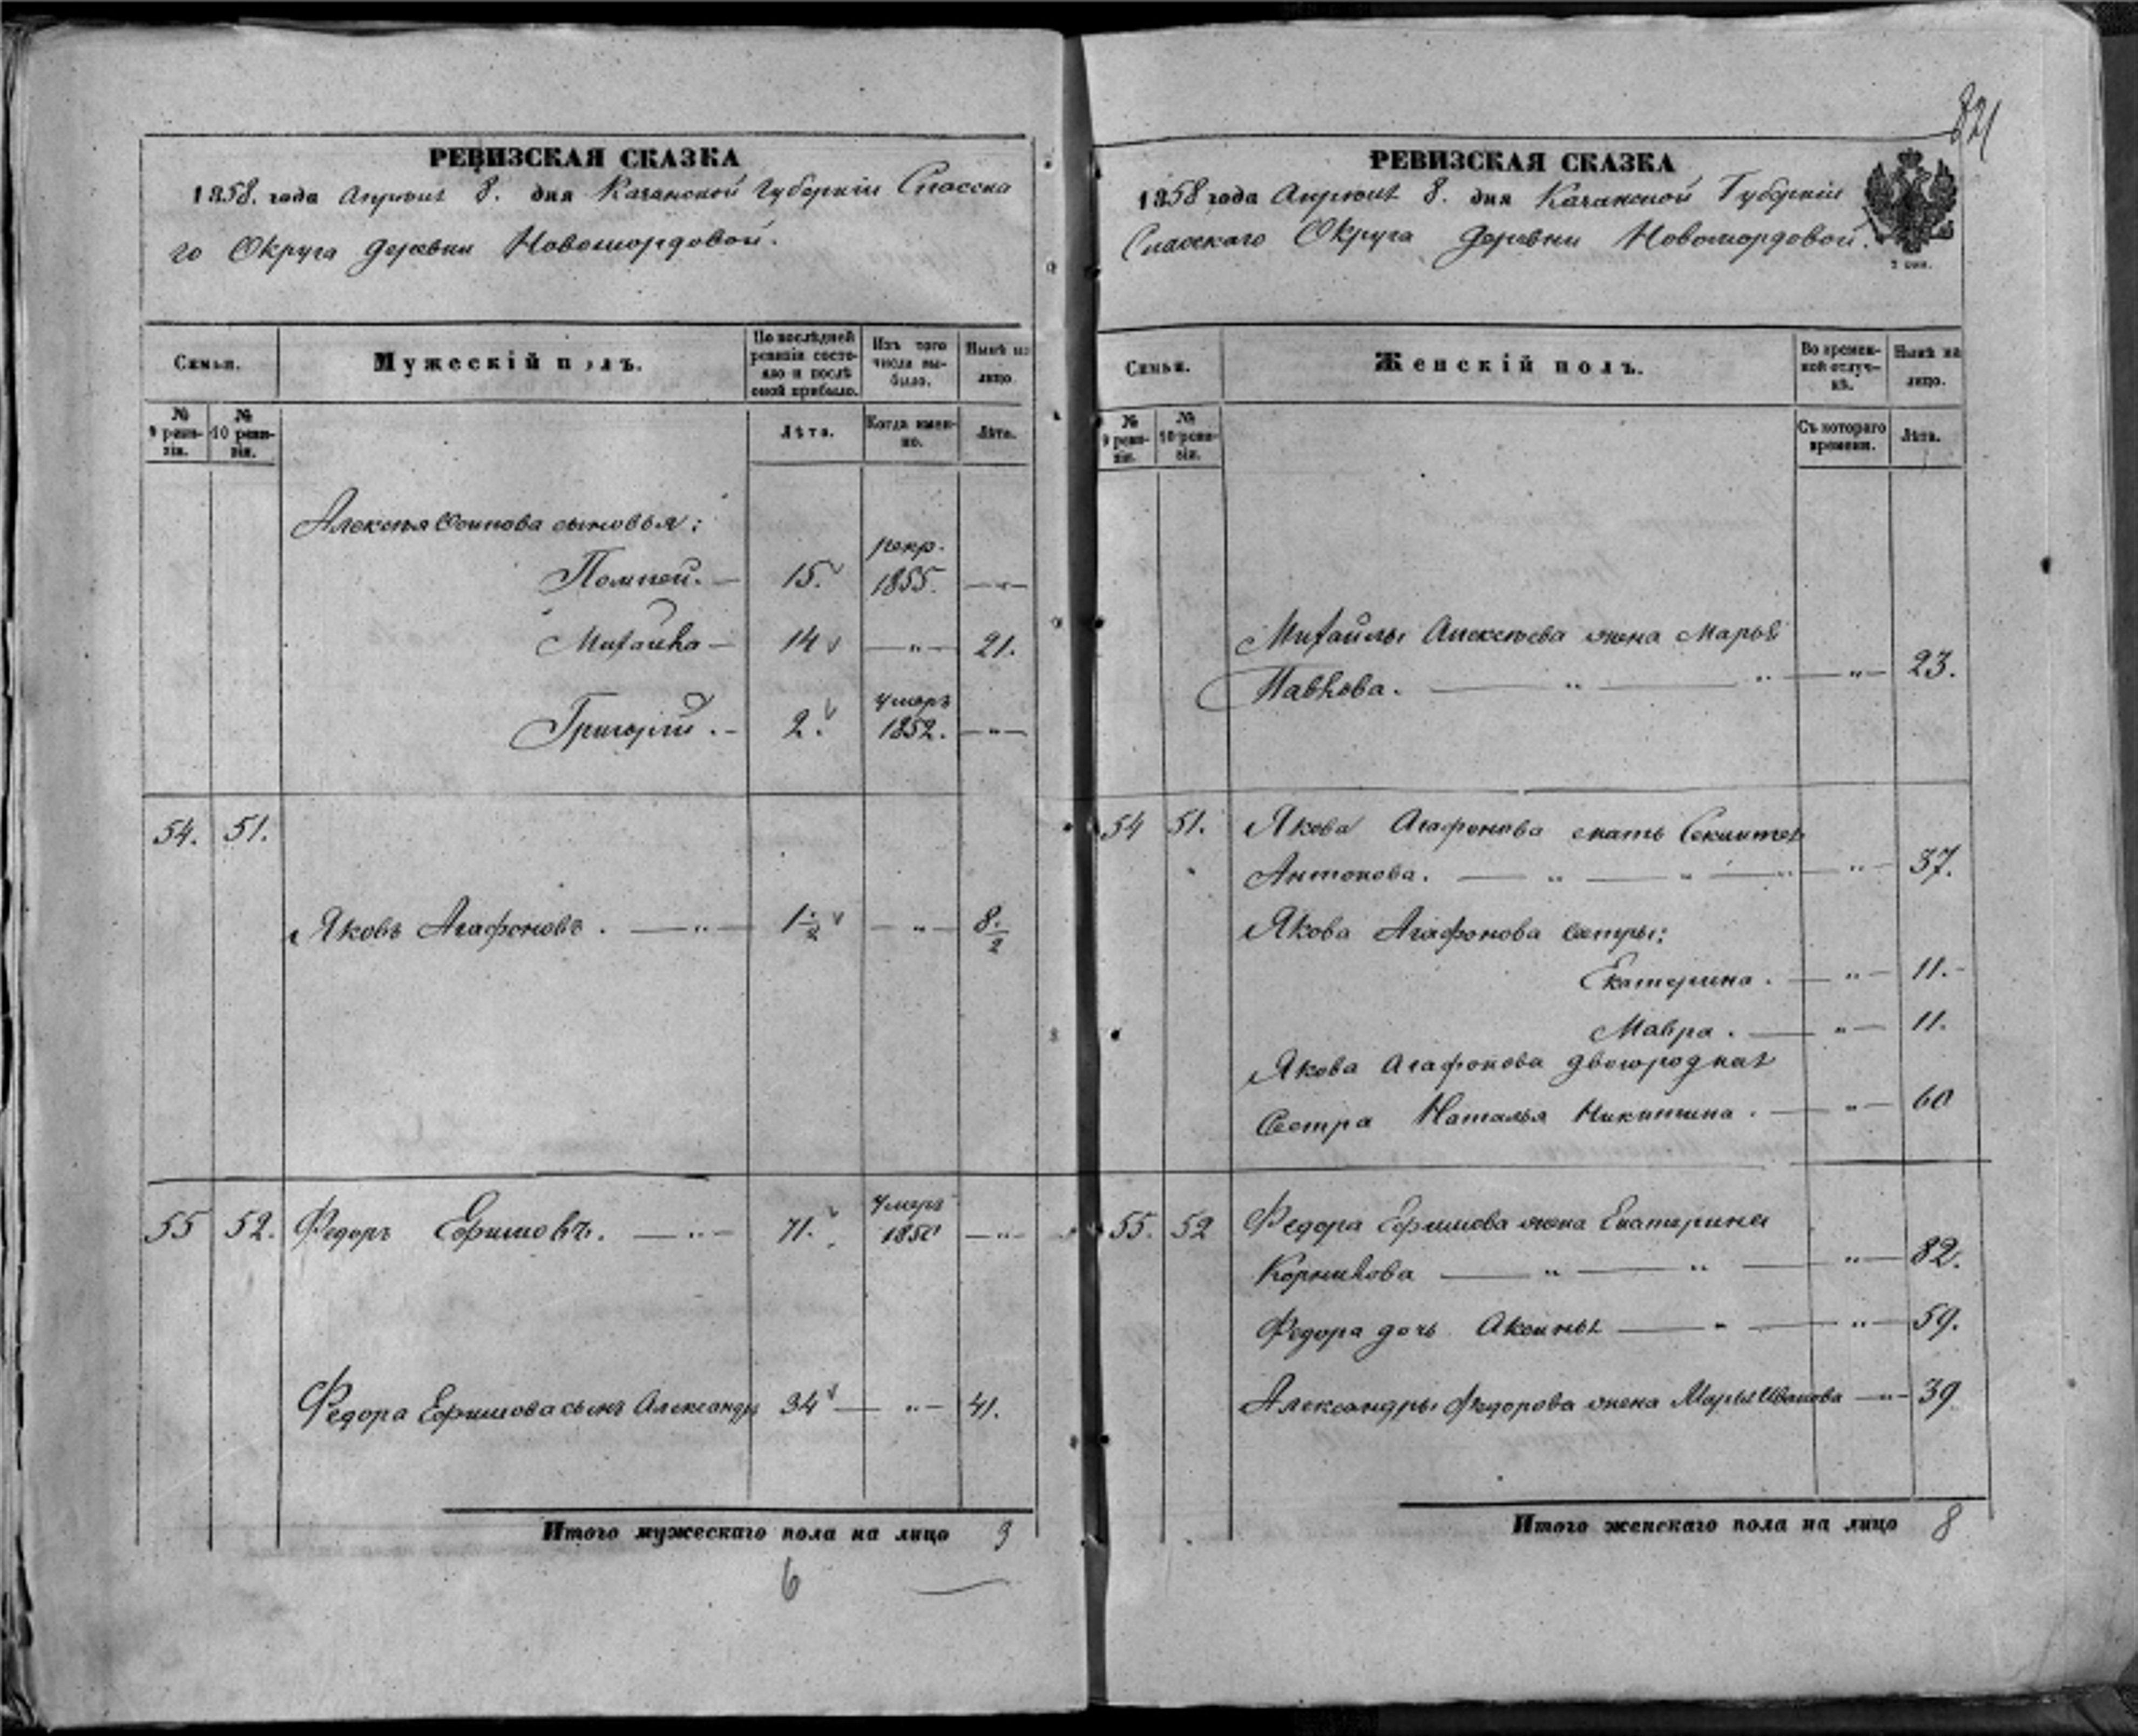 РЕВИЗСКАЯ СКАЗКА
1858. года Апрѣля 8. дня Казанской Губерніи Спасска
го Округа Деревни Новомордовой.
Семьи.
Мужескій полъ.
По послѣдней ревизіи состояло и послѣ оной прибыло.
Изъ того числа выбыло.
Нынѣ на лицо
№ 9 ревизіи.
№ 10 ревизіи.
Лѣта.
Когда именно.
Лѣта.
Алексѣя Осипова сыновья:
рекр.
Помпей. — 15. 1855. — „ —
Михайла — 14 — „ — 21.
умеръ
Григорій. — 2. 1852. — „ —
54. 51.
Яковъ Агафоновъ. — „ — 1 1/2 — „ — 8 1/2
умеръ
55 52. Федоръ Ефимовъ. — „ — 71. 1850 — „ —
Федора Ефимова сынъ Александръ 34 — „ — 41.
Итого мужескаго пола на лицо 3
6
821
РЕВИЗСКАЯ СКАЗКА
1858 года Апрѣля 8. дня Казанской Губерніи
Спасскаго Округа Деревни Новомордовой.
Семьи.
Женскій полъ.
Во временной отлучкѣ.
Нынѣ на лицо.
№ 9 ревизіи.
№ 10 ревизіи.
Съ котораго времени.
Лѣта.
Михайлы Алексѣева жена Марья
Павлова. — „ — „ — „ — 23.
54 51. Якова Агафонова мать
Антонова. — „ — „ — „ — „ — 37.
Якова Агафонова сестры:
Екатерина. — „ — 11.
Мавра. — „ — 11.
Якова Агафонова двоюродная
Сестра Наталья Никитина. — „ — 60
55. 52 Федора Ефимова жена Екатерина
Корнилова — „ — „ — „ — 82.
Федора дочь Аксинья — „ — „ — 59.
Александры Федорова жена Марья Иванова — „ — 39
Итого женскаго пола на лицо 8